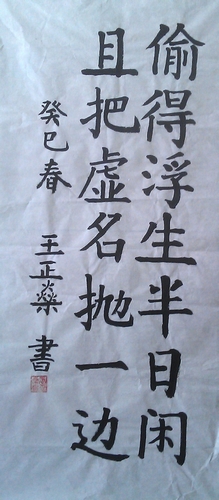 偷得浮生半日闲
且把虚名抛一边
癸巳春 王正燊 書